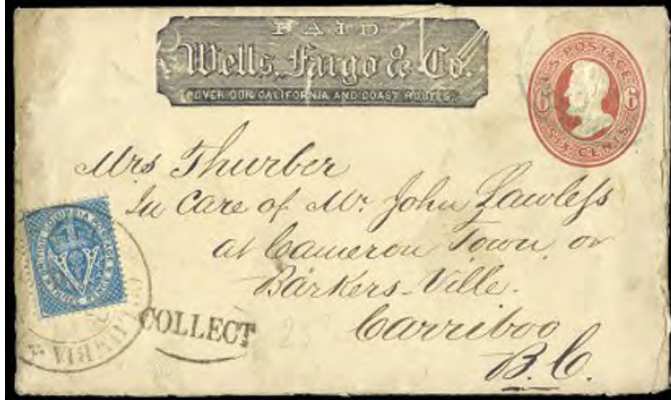 PAID
Wells, Fargo & Co.
OVER OUR CALIFORNIA AND COAST ROUTES.
U.S. POSTAGE
6 6
SIX CENTS
Mrs Thurber
In Care of Mr. John Lawless
at Cameron Town, or
Barkers-Ville.
Carriboo
B.C.
BRITISH COLUMBIA POSTAGE
V
COLUMBIA
COLLECT
25